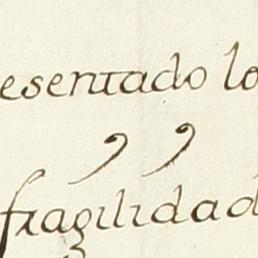 esentado lo
fragilidad